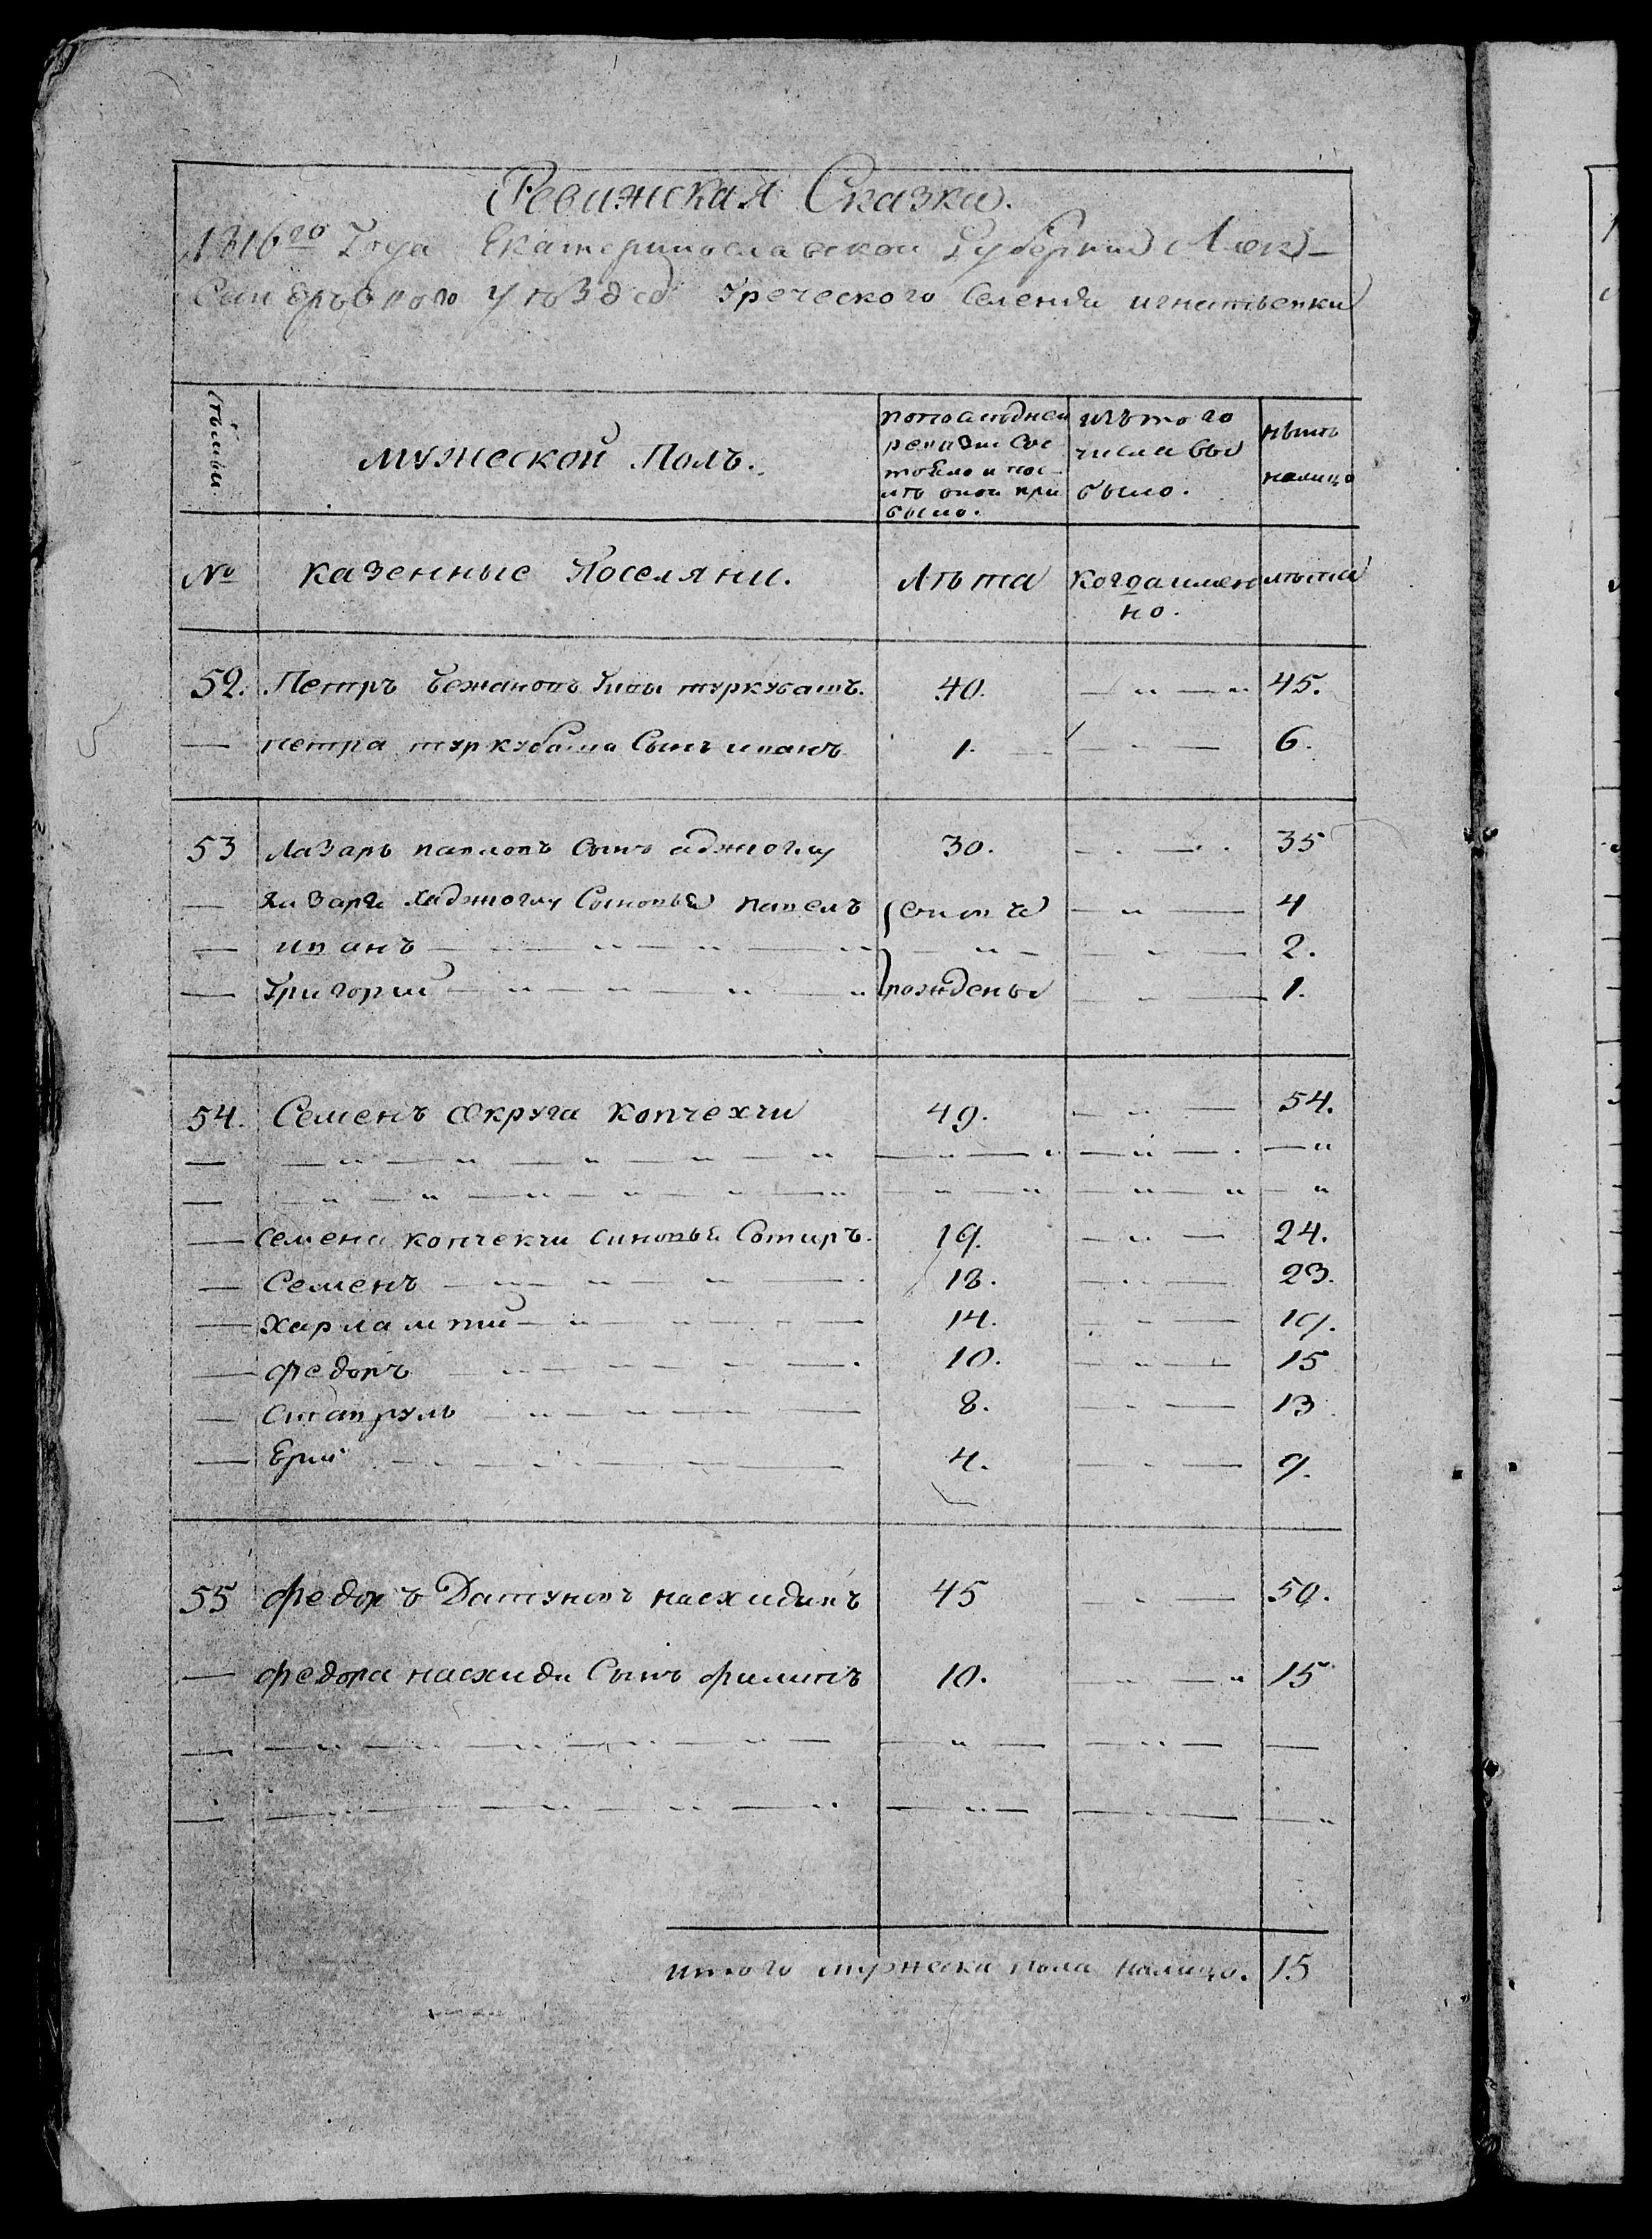 Ревижская Сказка.
1816го Года Екатеринославской Губернии Алек-
Сандръвского уѣзда Греческого Селения игнатьевки
Сѣмьи
мужеской Полъ.
попослѣдней ревизии Состояло и послѣ оной прибыло.
изъ того числа выбыло.
нынѣ налицо
№ казенные Поселяни. Лѣта Когда именно. лѣта
52. Петръ Бежановъ туркубашъ. 40. — " — " 45.
— петра туркубаша Сынъ иванъ 1. — " — 6.
53 Лазарь павловъ Сынъ аджиоглу 30. — . — . 35
— Лазаря Хаджиоглу Сыновья павелъ послѣ — " — 4
— иванъ — " — " — " — " — — " — 2.
— Григорий — " — " — " — " рожденны — " — 1.
54. Семенъ Округа копчехчи 49. — " — 54.
— — " — " — " — " — " — " — " — " — . — "
— — " — " — " — " — " — " — " — " — " — "
— Семена копчекчи синовья Сотиръ. 19. — " — 24.
— Семенъ — " — " — " — . 18. — " — 23.
— Харлампий — " — " — " — 14. — " — 19.
— федоръ — " — " — " — . 10. — " — 15
— Ставруль — " — " — " — 8. — " — 13
— Ерий — " — " — " — 4. — " — 9.
55 федоръ Датуновъ насхидивъ 45 — . — 50.
— федора насхиди Сынъ филипъ 10. — " — " 15
— — " — " — " — " — " — — " — — " — —
— — " — " — " — " — " — " — — " — — "
итого мужеска пола налицо. 15